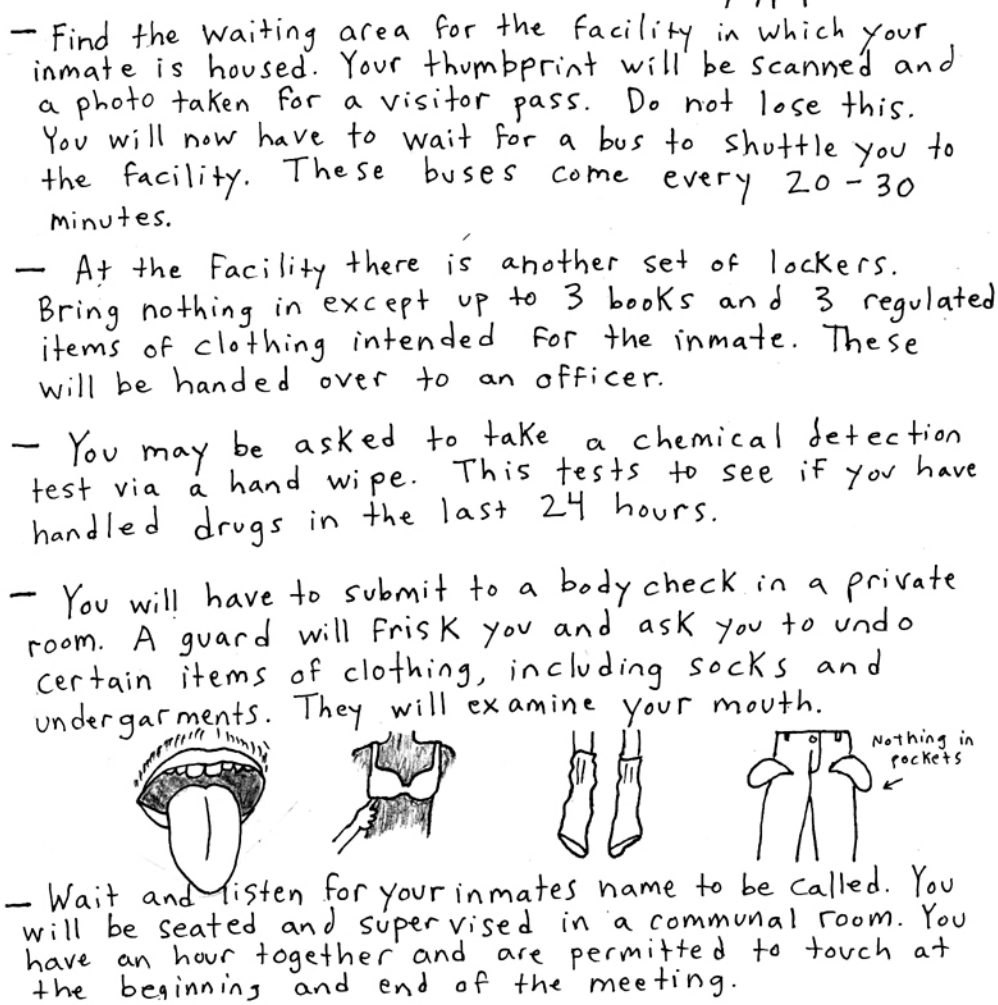 — Find the waiting area for the facility in which your
inmate is housed. Your thumbprint will be scanned and
a photo taken for a visitor pass. Do not lose this.
You will now have to wait for a bus to shuttle you to
the facility. These buses come every 20-30
minutes.
— At the Facility there is another set of lockers.
Bring nothing in except up to 3 books and 3 regulated
items of clothing intended for the inmate. These
will be handed over to an officer.
— You may be asked to take a chemical detection
test via a hand wipe. This tests to see if you have
handled drugs in the last 24 hours.
— You will have to submit to a body check in a private
room. A guard will frisk you and ask you to undo
certain items of clothing, including socks and
undergarments. They will examine your mouth.
Nothing in
pockets
— Wait and listen for your inmates name to be called. You
will be seated and supervised in a communal room. You
have an hour together and are permitted to touch at
the beginning and end of the meeting.